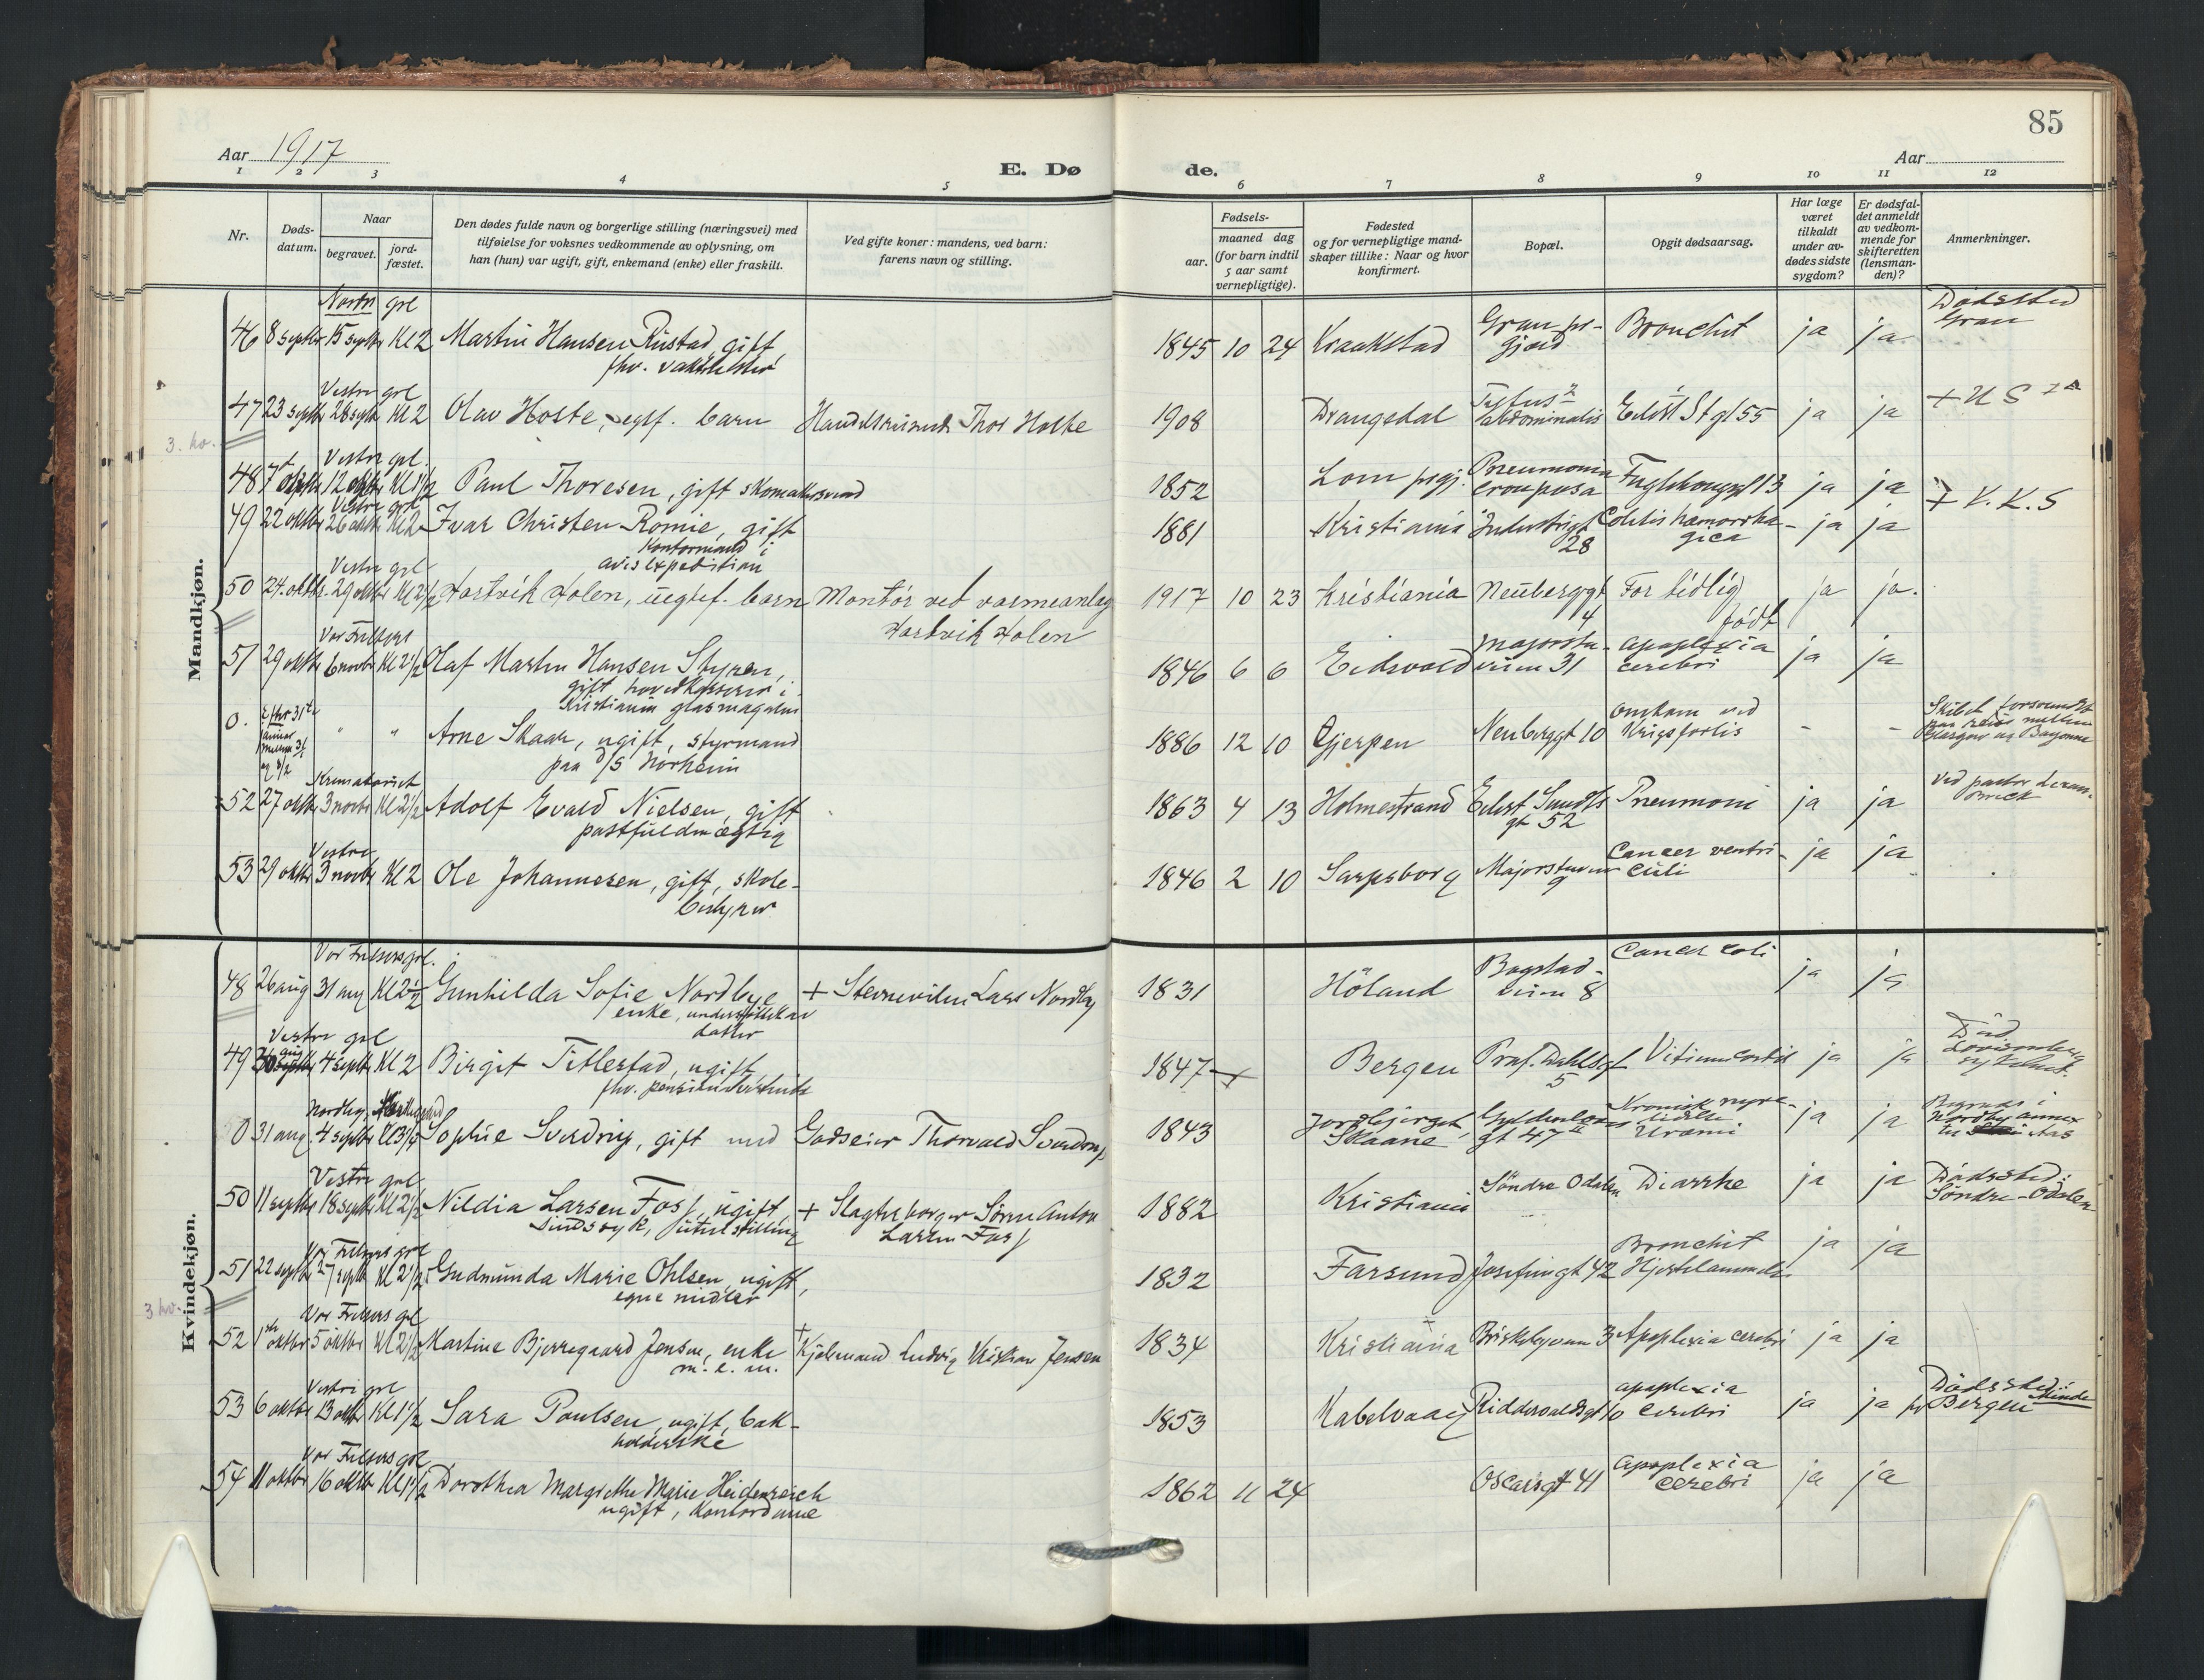 85
Aar 1917
E. Dø
de.
Aar
1 2 3 4 5 6 7 8 9 10 11 12
Nr.
Døds-
datum.
Naar
begravet.
jord-
fæstet.
Den dødes fulde navn og borgerlige stilling (næringsvei) med
tilføielse for voksnes vedkommende av oplysning, om
han (hun) var ugift, gift, enkemand (enke) eller fraskilt.
Ved gifte koner: mandens, ved barn:
farens navn og stilling.
Fødsels-
aar.
maaned dag
(for barn indtil
5 aar samt
vernepligtige).
Fødested
og for vernepligtige mand-
skaper tillike: Naar og hvor
konfirmert.
Bopæl.
Opgit dødsaarsag.
Har læge
været
tilkaldt
under av-
dødes sidste
sygdom?
Er dødsfal-
det anmeldt
av vedkom-
mende for
skifteretten
(lensman-
den)?
Anmerkninger.
Mandkjøn.
Nordre grl Dødssted
46 8 septbr 15 septbr Kl 2 Martin Hansen Rustad, gift 1845 10 24 Kraakstad Gran pr- Bronchit ja ja Gran
fhv. gjæld
Vestre grl
47 23 septbr 28 septbr Kl 2 Olav Holte, egtf. barn Thor Holte 1908 Drangedal abdominalis Eilert S gt 55 ja ja
3. kv.
Vestre grl.
48 7 oktbr 12 oktbr Kl 1 1/2 Paul Thoresen, gift 1852 Lom prgj. Pneumonia crouposa 13 ja ja
Vestre grl + V.K.S
49 22 oktbr 26 oktbr Kl 2 Ivar Christen Romie, gift 1881 Kristiania Industrigt 28 Colitis hæmorrha- gica ja ja
Kontormand i
avisexpedition
Vestre grl
50 24. oktbr. 29 oktbr Kl 2 1/2 Hartvik Holen, uegtef. barn Montör ved varmeanlæg 1917 10 23 Kristiania Neuberggt 4 For tidlig født ja ja.
Hartvik Holen
Vor Frelsers
51 29 oktbr 6 novbr Kl 2 1/2 Olaf Martin Hansen Styren, 1846 6 6 Eidsvold Majorstu- veien 31 apoplexia cerebri ja ja
gift hovedkasserer i
Kristiania glasmagasin
0. " " Arne Skaar, ugift, styrmand 1886 12 10 Gjerpen Neuberggt 10 omkom ved Krigsforlis - - Skibet forsvundet
paa D/S Norheim paa reise mellem
Glasgow og Bayonne
Krematoriet
52 27 oktbr 3 novbr Kl 2 1/2 Adolf Evald Nielsen, gift 1863 4 13 Holmestrand Eilert Sundts gt 52 Pneumoni ja ja Ved pastor
postfuldmægtig
Vestre
53 29 oktbr 3 novbr Kl 2 Ole Johannesen, gift, skole- 1846 2 10 Sarpsborg Majorstuvn 9 Cancer ventri- culi ja ja
bestyrer
Kvindekjøn.
Vor Frelsers grl.
48 26 aug 31 aug Kl 2 1/2 Gunhilda Sofie Nordbye + Lars Nordby 1831 Höland Bogstad- veien 8 Cancer coli ja ja
enke, understöttet av
datter
Vestre grl
49 30 aug 4 septbr Kl 2 Birgit Titlestad, ugift 1847 Bergen Prof. Dahlsgt 5 Vitium cordis ja ja Död
fhv. pensionatsbestyrer Lovisenberg
sykehus.
Nordby Kirkegaard
0 31 aug 4 septbr Kl 3 1/4 Sophie Sverdrup, gift med Godseier Thorvald Sverdrup 1843 Skaane Gyldenløves gt 47 Kronisk nyre- lidelse Uræmi ja ja Begraves i
Nordby annex
til Aas
Vestre grl
50 11 septbr 18 septbr Kl 2 1/2 Nildia Larsen Foss, ugift + Slagterborger Sören Anton 1882 Kristiania Söndre Odalen Diarrhe ja ja Dödssted:
sindssyk, uten stilling Larsen Foss Söndre-Odalen
Vor Frelsers grl
51 22 septbr 27 septbr Kl 2 1/2 Gudmunda Marie Ohlsen, ugift, 1832 Farsund Josefinegt 42 Bronchit Hjertelammelse ja ja
egne midler
3 kv.
Vor Frelsers grl
52 1ste oktbr 5 oktbr Kl 2 1/2 Martine Bjerregaard Jensen, enke + Kjøbmand Ludvig Kristian Jensen 1834 Kristiania Briskebyveien 3 Apoplexia cerebri ja ja
m. e. m.
Vestre grl
53 6 oktbr 13 oktbr Kl 1 1/2 Sara Poulsen, ugift, bok- 1853 Kabelvaag Riddervoldsgt 10 apoplexia cerebri ja ja Dödssted: Minde
holderske pr Bergen
Vor Frelsers grl
54 11 oktbr 16 oktbr Kl 1 1/2 Dorothea Margrethe Marie Heidenreich 1862 11 24 Oscarsgt 41 apoplexia cerebri ja ja
ugift, Kontordame